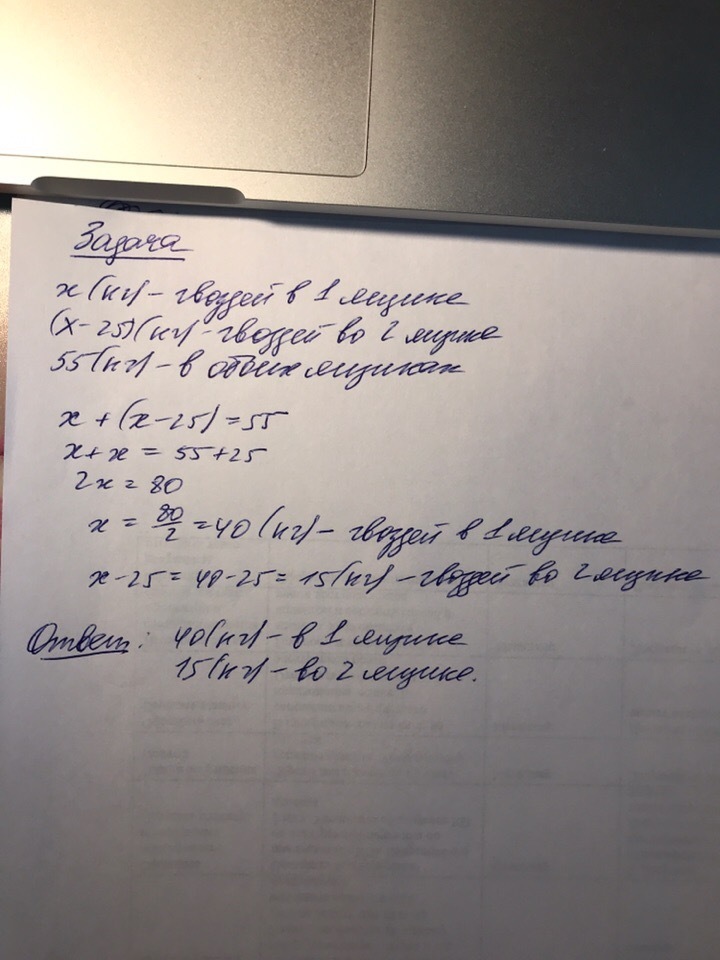 Задача
х (кг) - гвоздей в 1 ящике
(х-25) (кг) - гвоздей во 2 ящике
55 (кг) - в обоих ящиках
х + (х-25) = 55
х+х = 55+25
2х = 80
х = 80/2 = 40 (кг) - гвоздей в 1 ящике
х-25 = 40-25 = 15 (кг) - гвоздей во 2 ящике
Ответ: 40 (кг) - в 1 ящике
15 (кг) - во 2 ящике.